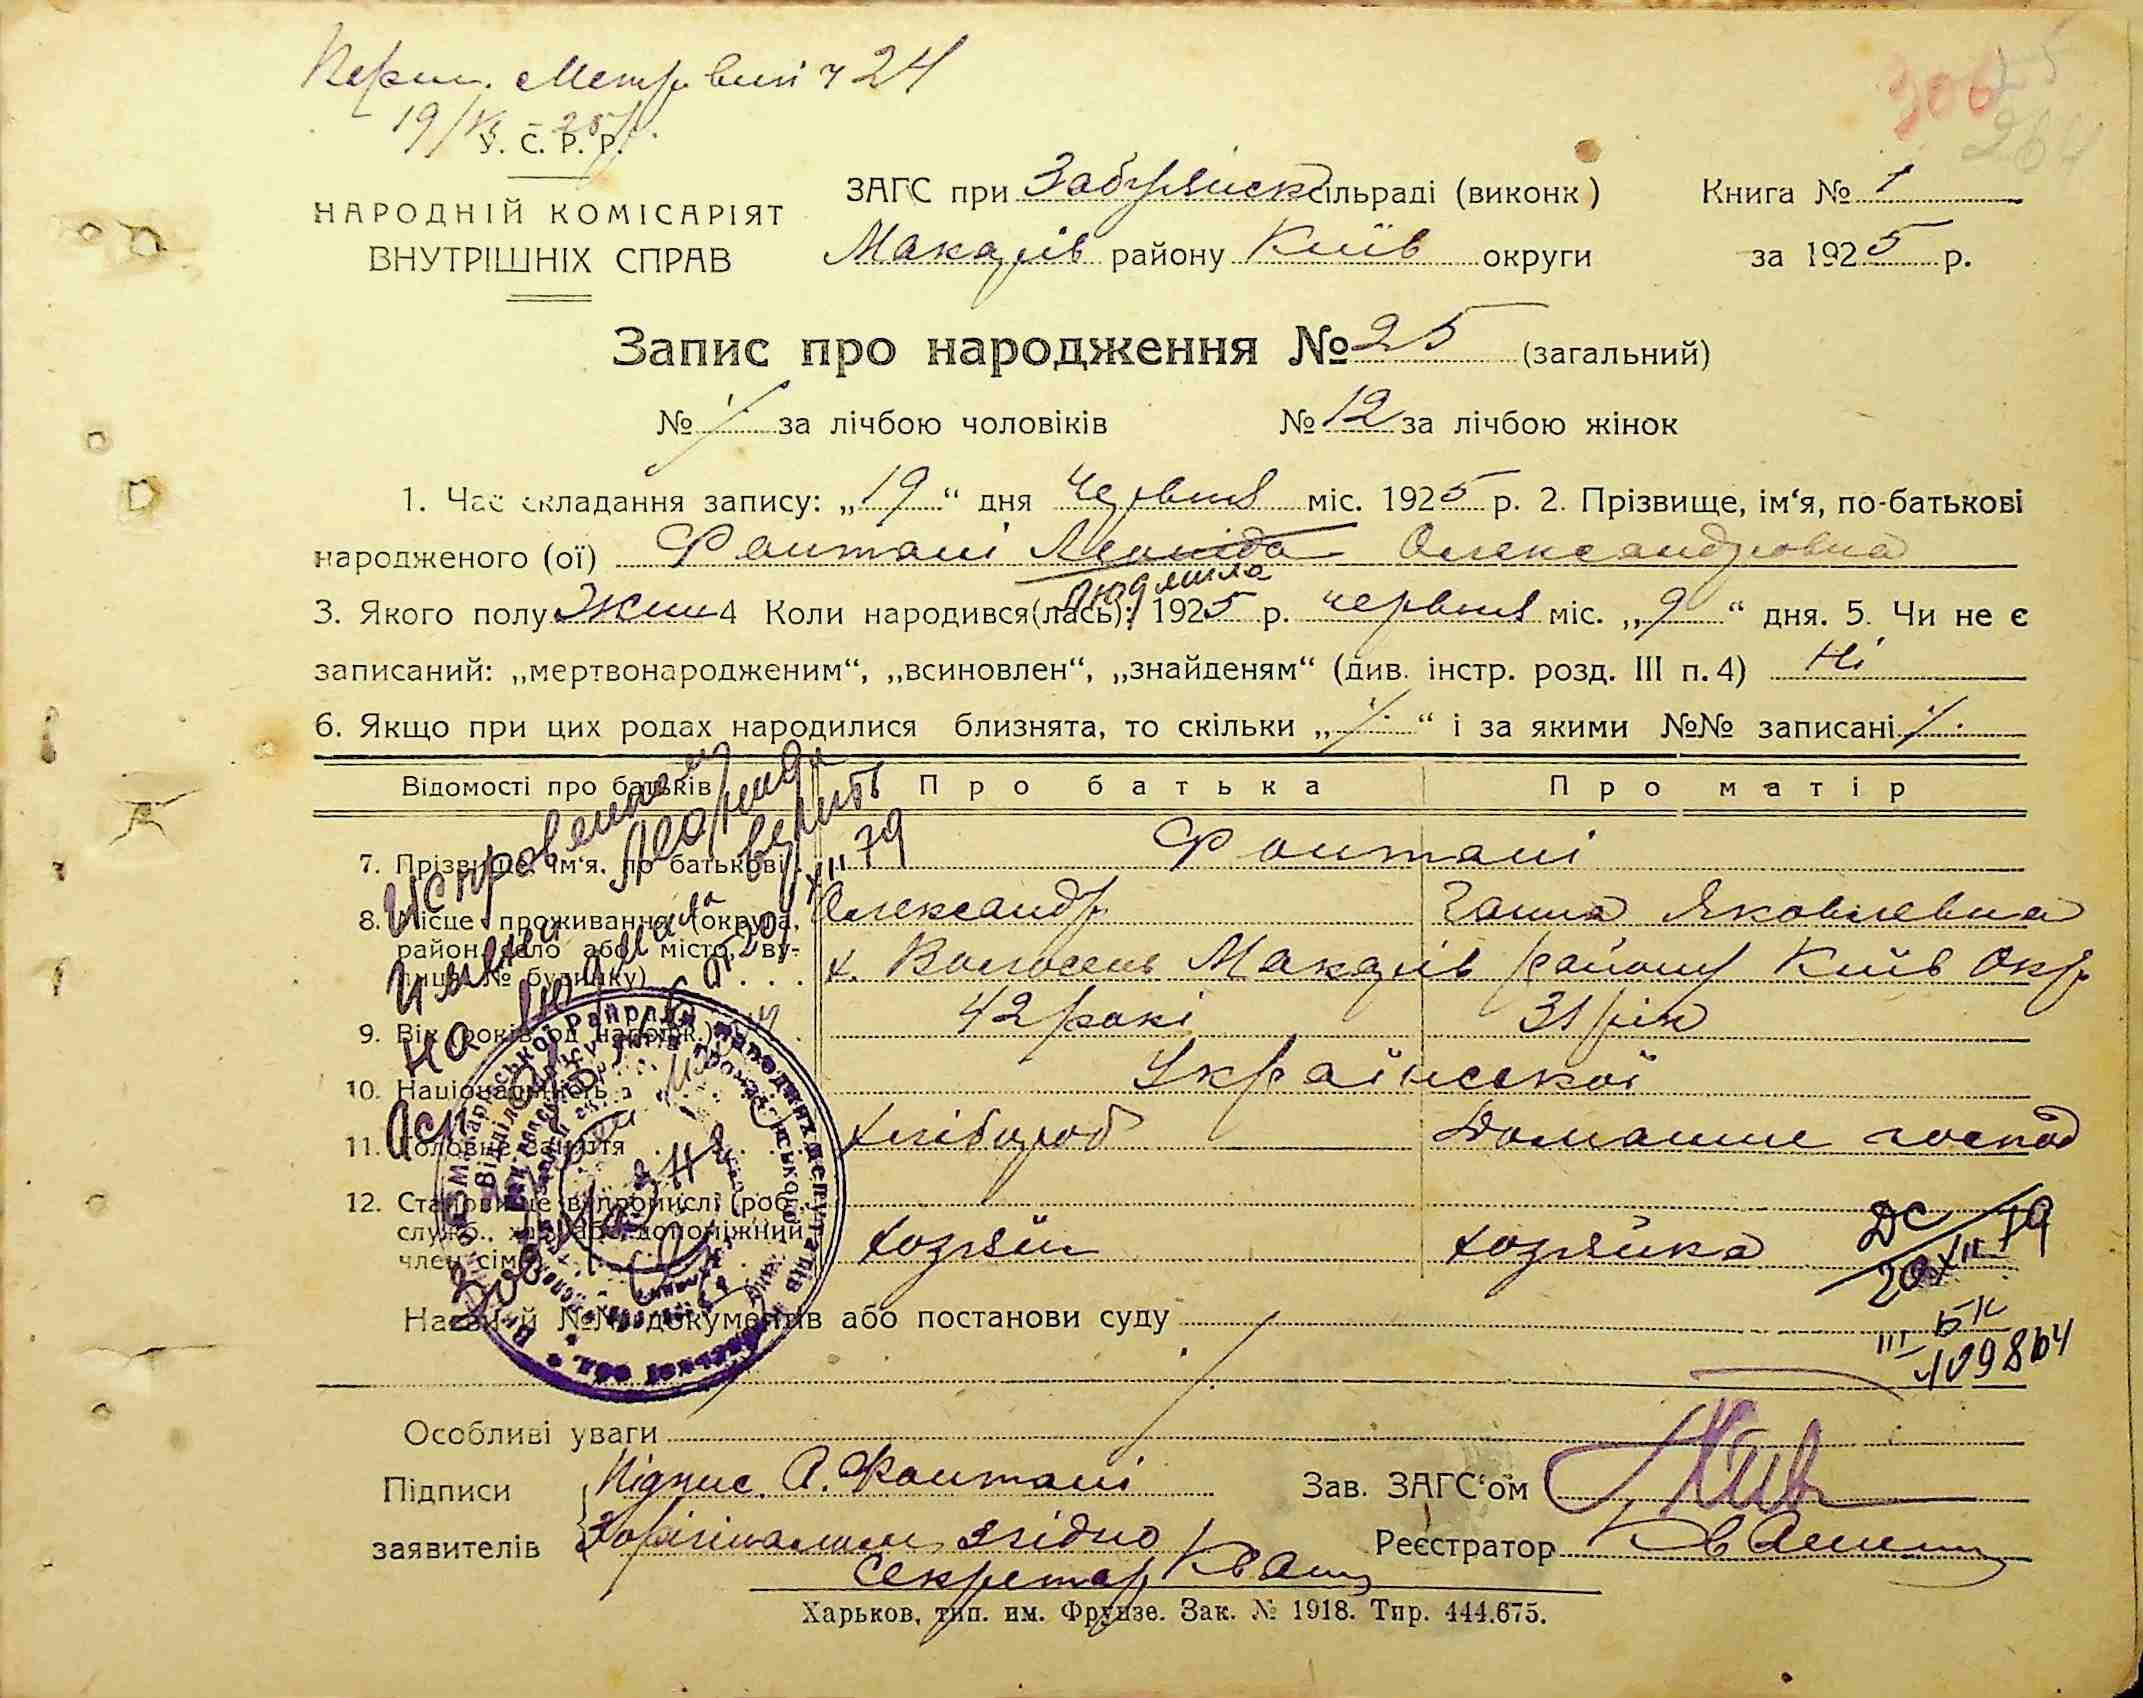 Метр. вип. ч 24
19/VI - 25 р.
У. С. Р. Р.
НАРОДНІЙ КОМІСАРІЯТ
ВНУТРІШНІХ СПРАВ
306
264
ЗАГС при Забуянськ сільраді (виконк)
Книга № 1
Макарів району Київ округи
за 1925 р.
Запис про народження № 25 (загальний)
№ за лічбою чоловіків № 12 за лічбою жінок
1. Час складання запису: „19“ дня червня міс. 1925 р. 2. Прізвище, ім‘я, по-батькові
народженого (ої) Фонтані Леоніда Олександровна
Людмила
3. Якого полу Жин 4 Коли народився(лась): 1925 р. червня міс. „9“ дня. 5. Чи не є
записаний: „мертвонародженим“, „всиновлен“, „знайденям“ (див. інстр. розд. III п. 4) Ні
6. Якщо при цих родах народилися близнята, то скільки „ “ і за якими №№ записані
Відомості про батьків Про батька Про матір
7. Прізвище, ім‘я, по батькові Фонтані
Олександр Ганна Яковлевна
8. Місце проживання (округа,
район, село або місто, ву-
лиця, № будинку) х. Макарів району Київ Окр
9. Вік (років од народж.) 42 роки 31 рік
10. Національність Української
11. Головне заняття Хлібороб Домашнє господ
12. Становище в промислі (роб.,
служ., хаз. або допоміжний
член сім‘ї) хозяїн хозяйка
Исправленному
верить
имени
на Людмила
ДС
20 XII 79
III БК
№ 109864
Назва й №№ документів або постанови суду
Особливі уваги
Підписи
заявителів
Підпис. А. Фонтані
З орігіналом згідно
Секретар Кваш
Зав. ЗАГС‘ом
Реєстратор
Харьков, тип. им. Фрунзе. Зак. № 1918. Тир. 444.675.